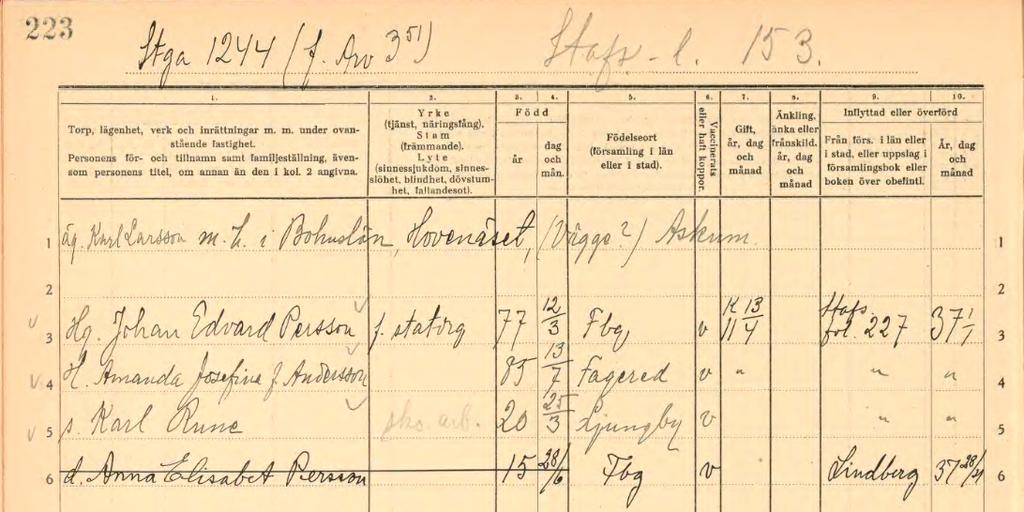 223
Stga 1244 (f. Av 3⁵¹) Stafs - l. 153.
1. 2. 3. 4. 5. 6. 7. 8. 9. 10.
Torp, lägenhet, verk och inrättningar m. m. under ovanstående fastighet.
Personens för- och tillnamn samt familjeställning, även-
som personens titel, om annan än den i kol. 2 angivna.
Yrke
(tjänst, näringsfång).
Stam
(främmande).
Lyte
(sinnessjukdom, sinnes-
slöhet, blindhet, dövstum-
het, fallandesot).
Född
år
dag
och
mån.
Födelseort
(församling i län
eller i stad).
Vaccinerats
eller haft koppor.
Gift,
år, dag
och
månad
Änkling,
änka eller
frånskild.
år, dag
och
månad
Inflyttad eller överförd
Från förs. i län eller
i stad, eller uppslag i
församlingsbok eller
boken över obefintl.
År, dag
och
månad
1 äg. Karl Larsson m. h. i Bohuslän, Hovenäset, (Vägga?) Askum. 1
2 2
3 Hg. Johan Edvard Persson f. statdrg 77 12/3 Fbg v K 13 11/4 Stafs. fol. 227 37 1/1 3
4 H. Amanda Josefina f. Andersson 85 13/7 Fagered v " " " 4
5 s. Karl Rune sko. arb. 20 25/3 Ljungby v " " 5
6 d. Anna Elisabet Persson 15 28/6 Fbg v Lindberg 37 28/ 6